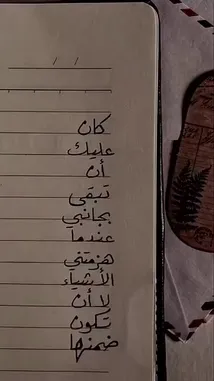 كان
عليك
أن
تبقى
بجانبي
عندما
هزمتني
الأشياء
لا أن
تكون
ضمنها